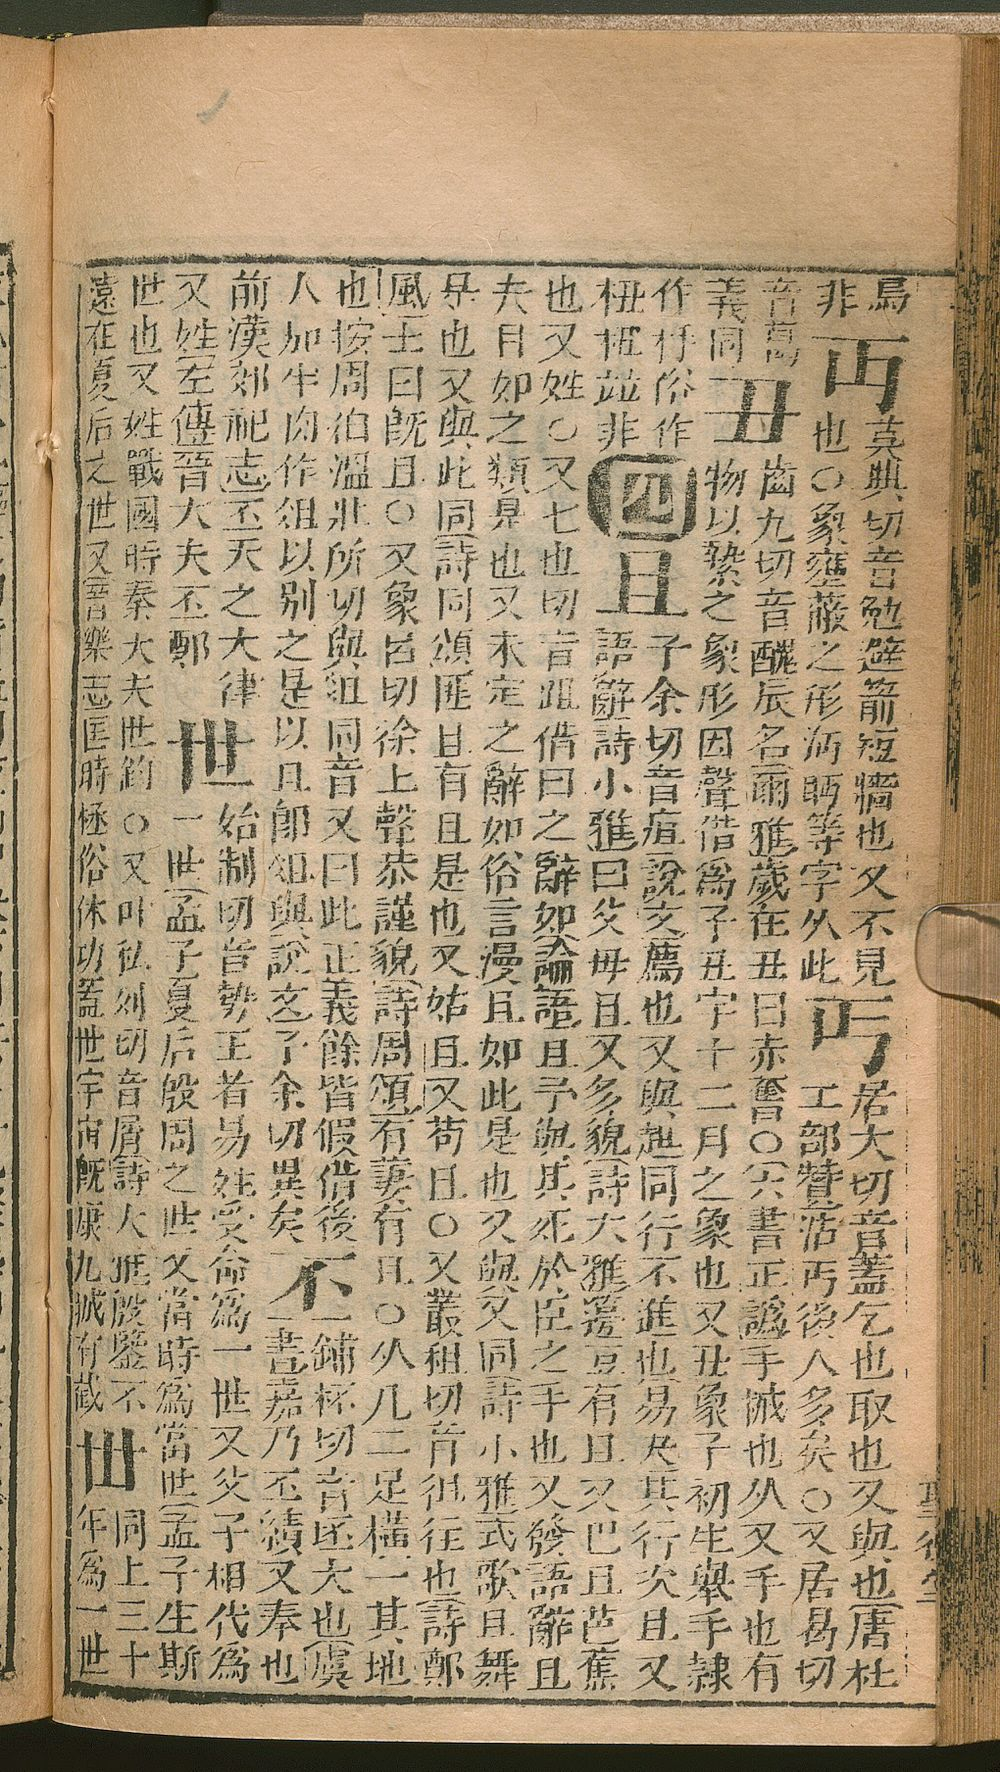 焉
非
丏
莫典切音勉避箭短牆也又不見
也○象壅蔽之形沔眄等字从此
丐
居大切音蓋乞也取也又與也唐杜
工部贊普活丐後人多矣○又居曷切
音葛
義同
丑
齒九切音醜辰名爾雅歲在丑曰赤奮○六書正譌手械也从又手也有
物以縶之象形因聲借爲子丑字十二月之象也又丑象子初生舉手隷
作杽俗作
杻並非
四
且
子余切音疽說文薦也又與趄同行不進也易夬其行次且又
語辭詩小雅曰父母且又多貌詩大雅籩豆有且又巴且芭蕉
也又姓○又七也切音跙借曰之辭如論語且予與其死於臣之手也又發語辭且
夫且如之類是也又未定之辭如俗言漫且如此是也又與又同詩小雅式歌且舞
是也又與此同詩同頌匪且有且是也又姑且又苟且○又叢租切音徂往也詩鄭
風士曰旣且○又象呂切徐上聲恭謹貌詩周頌有萋有且○从几二足橫一其地
也按周伯溫壯所切與俎同音又曰此正義餘皆假借後
人加半肉作俎以别之是以且卽俎與說文子余切異矣
丕
鋪杯切音胚大也虞
書嘉乃丕績又奉也
前漢郊祀志丕天之大律
又姓左傳晉大夫丕鄭
世
始制切音勢王者易姓受命爲一世又父子相代爲
一世孟子夏后殷周之世又當時爲當世孟子生斯
世也又姓戰國時秦大夫世鈞○又叶私列切音屑詩大雅殷鑒不
遠在夏后之世又晉樂志匡時拯俗休功蓋世宇宙旣康九域有截
丗
同上三十
年爲一世